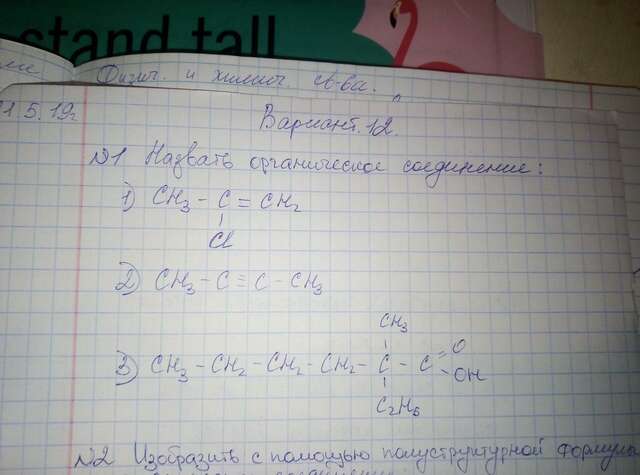 stand tall
Физич. и химич. св-ва.
1.5.19г
Вариант 12.
№1 Назвать органическое соединение:
1) CH3 - C = CH2
Cl
2) CH3 - C ≡ C - CH3
CH3
3) CH3 - CH2 - CH2 - CH2 - C - C = O
- OH
C2H6
№2 Изобразить с помощью полуструктурной формулы